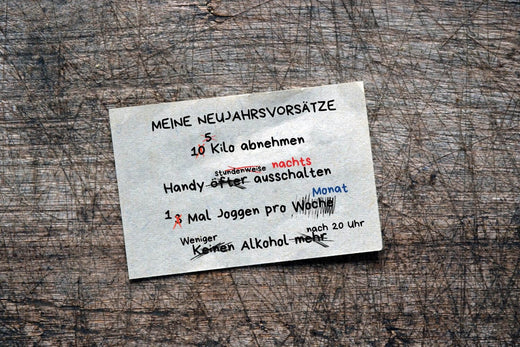 MEINE NEUJAHRSVORSÄTZE
5
10 Kilo abnehmen
stundenweise nachts
Handy öfter ausschalten
Monat
1 3 Mal Joggen pro Woche
Weniger nach 20 Uhr
Keinen Alkohol mehr